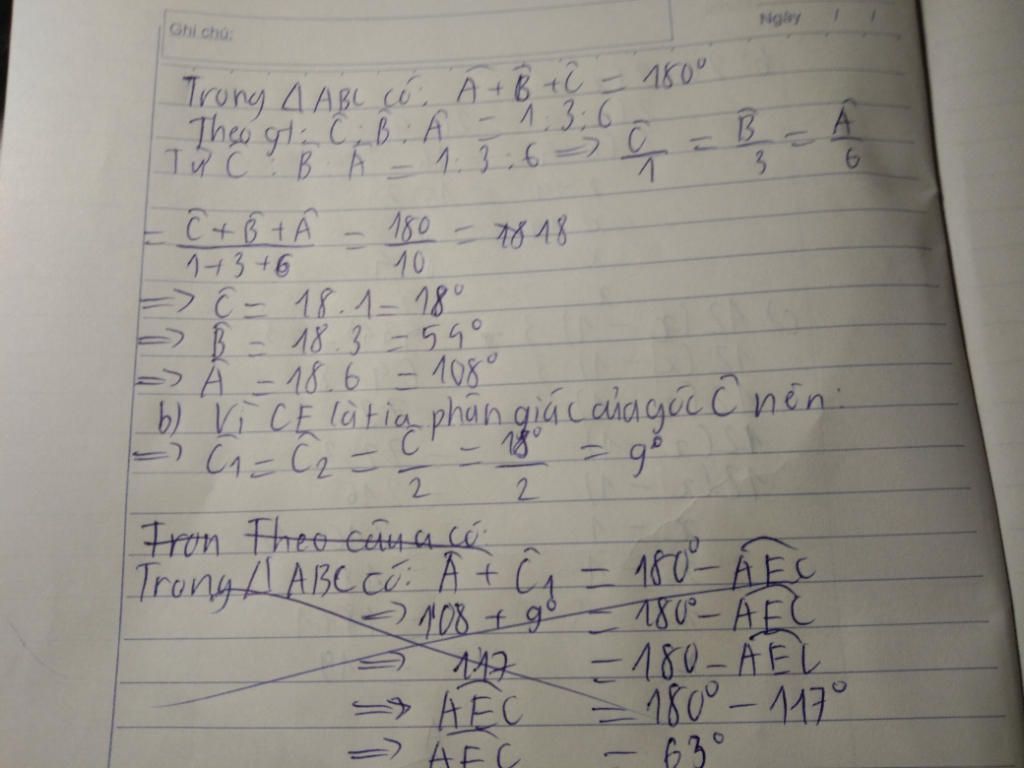 Ghi chú:
Ngày / /
Trong Δ ABC có: Â + B̂ + Ĉ = 180°
Theo gt: Ĉ : B̂ : Â = 1 : 3 : 6
Từ Ĉ : B̂ : Â = 1 : 3 : 6 => Ĉ/1 = B̂/3 = Â/6
= (Ĉ + B̂ + Â)/(1+3+6) = 180/10 = 18
=> Ĉ = 18 . 1 = 18°
=> B̂ = 18 . 3 = 54°
=> Â = 18 . 6 = 108°
b) Vì CE là tia phân giác của góc Ĉ nên:
=> Ĉ₁ = Ĉ₂ = Ĉ/2 = 18°/2 = 9°
Tron Theo câu a có:
Trong Δ ABC có: Â + Ĉ₁ = 180° - AEC
=> 108 + 9° = 180° - AEC
=> 117 = 180 - AEC
=> AEC = 180° - 117°
=> AEC = 63°